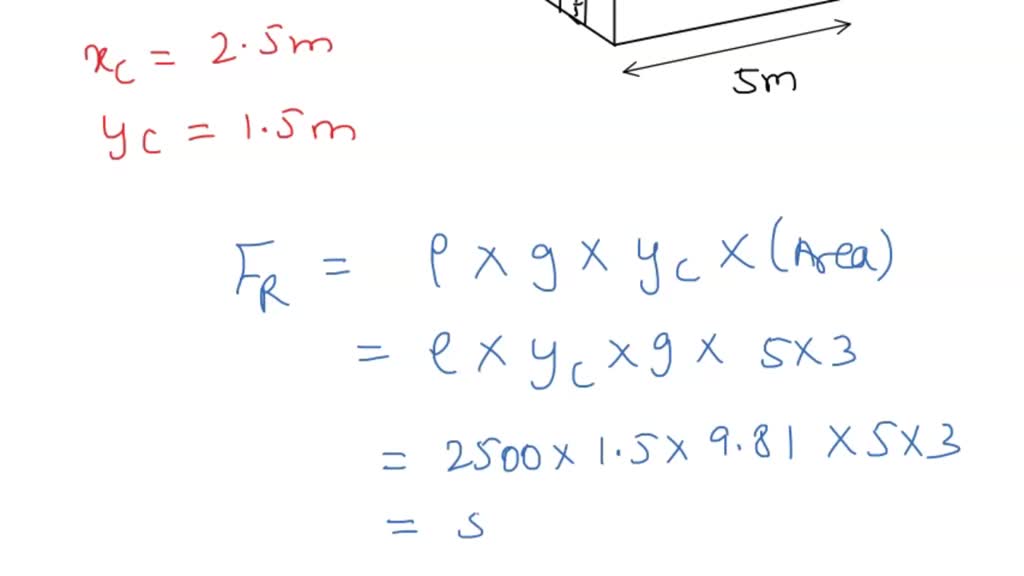 5m
x_C = 2.5m
y_C = 1.5m
F_R = ρ × g × y_C × (Area)
= ρ × y_C × g × 5×3
= 2500 × 1.5 × 9.81 × 5×3
= 5